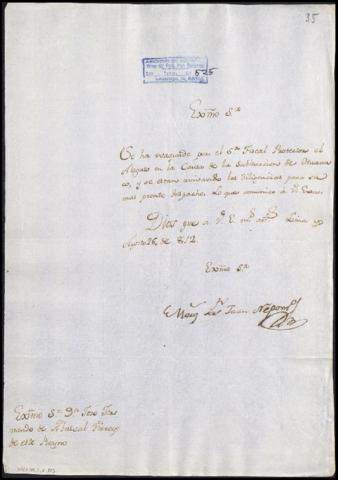 35
525
Exṁo Sᵒʳ
Se ha evaquado por el Sᵒʳ Fiscal Protector el
Alegato en la Causa de la Sublevacion de Huanu
co, y se estan activando las diligencias para su
mas pronto despacho. Lo que comunico à V. Exª.
Dios gue à V. E. mˢ añˢ. Lima y
Agosto 26 de 812.
Exṁo Sᵒʳ
Juan
Exṁo Sᵒʳ Dⁿ Jose Fer
nando de Abascal Virrey
de este Reyno